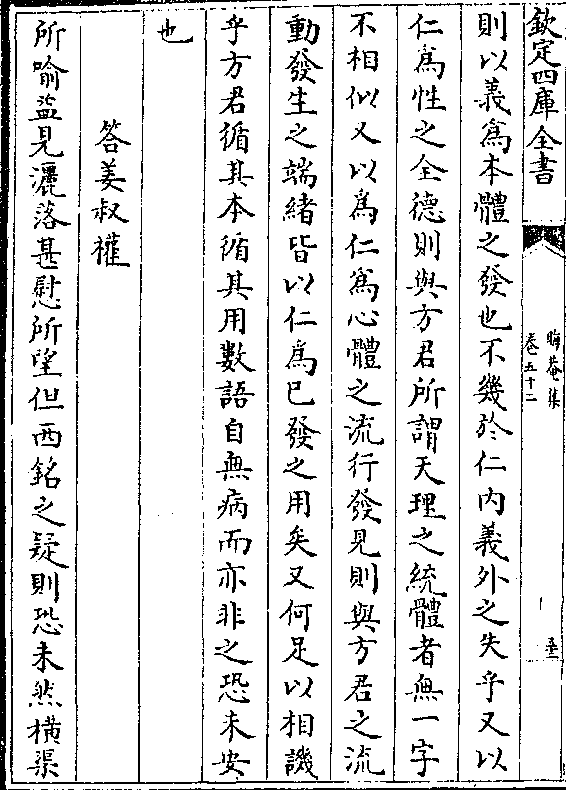 欽定四庫全書
晦菴集
卷五十二
則以義為本體之發也不幾於仁內義外之失乎又以
仁為性之全德則與方君所謂天理之統體者無一字
不相似又以為仁為心體之流行發見則與方君之流
動發生之端緒皆以仁為已發之用矣又何足以相譏
乎方君循其本循其用數語自無病而亦非之恐未安
也
答姜叔權
所喻益見灑落甚慰所望但西銘之疑則恐未然橫渠